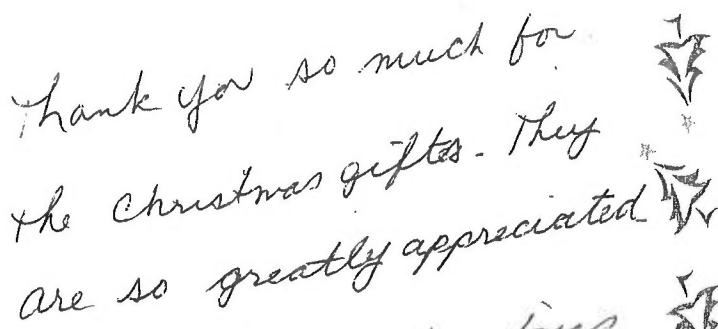 Thank you so much for
the Christmas gifts. They
are so greatly appreciated